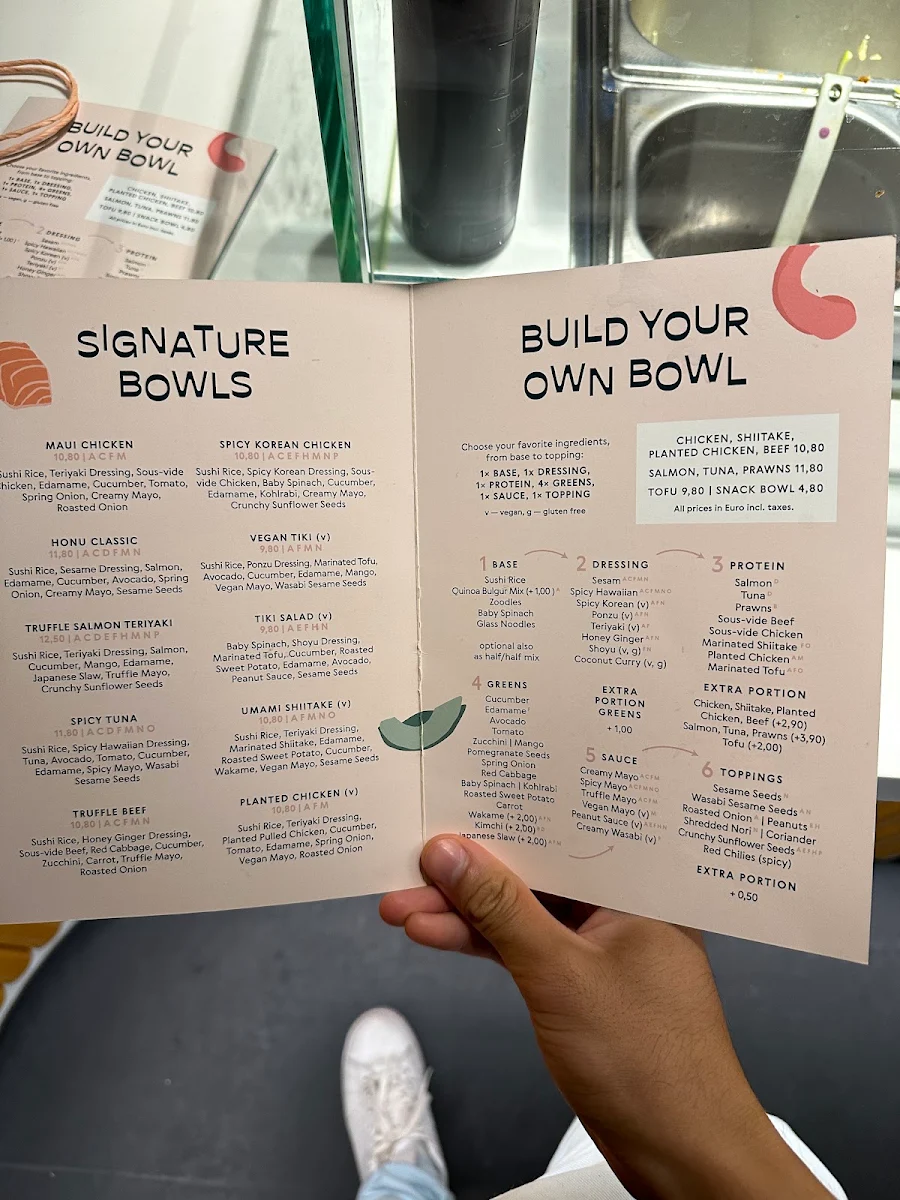 BUILD YOUR
OWN BOWL
choose your favorite ingredients,
from base to topping:
1× BASE, 1× DRESSING,
1× PROTEIN, 4× GREENS,
1× SAUCE, 1× TOPPING
v — vegan, g — gluten free
CHICKEN, SHIITAKE,
PLANTED CHICKEN, BEEF 10,80
SALMON, TUNA, PRAWNS 11,80
TOFU 9,80 | SNACK BOWL 4,80
All prices in Euro incl. taxes.
2 DRESSING
Sesam
Spicy Hawaiian
Spicy Korean (v)
Ponzu (v)
Teriyaki (v)
Honey Ginger
3 PROTEIN
Salmon
Tuna
Prawns
SIGNATURE
BOWLS
MAUI CHICKEN
10,80 | A C F M
Sushi Rice, Teriyaki Dressing, Sous-vide
Chicken, Edamame, Cucumber, Tomato,
Spring Onion, Creamy Mayo,
Roasted Onion
HONU CLASSIC
11,80 | A C D F M N
Sushi Rice, Sesame Dressing, Salmon,
Edamame, Cucumber, Avocado, Spring
Onion, Creamy Mayo, Sesame Seeds
TRUFFLE SALMON TERIYAKI
12,50 | A C D E F H M N P
Sushi Rice, Teriyaki Dressing, Salmon,
Cucumber, Mango, Edamame,
Japanese Slaw, Truffle Mayo,
Crunchy Sunflower Seeds
SPICY TUNA
11,80 | A C D F M N O
Sushi Rice, Spicy Hawaiian Dressing,
Tuna, Avocado, Tomato, Cucumber,
Edamame, Spicy Mayo, Wasabi
Sesame Seeds
TRUFFLE BEEF
10,80 | A C F M
Sushi Rice, Honey Ginger Dressing,
Sous-vide Beef, Red Cabbage, Cucumber,
Zucchini, Carrot, Truffle Mayo,
Roasted Onion
SPICY KOREAN CHICKEN
10,80 | A C E F H M N P
Sushi Rice, Spicy Korean Dressing, Sous-
vide Chicken, Baby Spinach, Cucumber,
Edamame, Kohlrabi, Creamy Mayo,
Crunchy Sunflower Seeds
VEGAN TIKI (v)
9,80 | A F M N
Sushi Rice, Ponzu Dressing, Marinated Tofu,
Avocado, Cucumber, Edamame, Mango,
Vegan Mayo, Wasabi Sesame Seeds
TIKI SALAD (v)
9,80 | A E F H N
Baby Spinach, Shoyu Dressing,
Marinated Tofu, Cucumber, Roasted
Sweet Potato, Edamame, Avocado,
Peanut Sauce, Sesame Seeds
UMAMI SHIITAKE (v)
10,80 | A F M N O
Sushi Rice, Teriyaki Dressing,
Marinated Shiitake, Edamame,
Roasted Sweet Potato, Cucumber,
Wakame, Vegan Mayo, Sesame Seeds
PLANTED CHICKEN (v)
10,80 | A F M
Sushi Rice, Teriyaki Dressing,
Planted Pulled Chicken, Cucumber,
Tomato, Edamame, Spring Onion,
Vegan Mayo, Roasted Onion
BUILD YOUR
OWN BOWL
Choose your favorite ingredients,
from base to topping:
1× BASE, 1× DRESSING,
1× PROTEIN, 4× GREENS,
1× SAUCE, 1× TOPPING
v — vegan, g — gluten free
CHICKEN, SHIITAKE,
PLANTED CHICKEN, BEEF 10,80
SALMON, TUNA, PRAWNS 11,80
TOFU 9,80 | SNACK BOWL 4,80
All prices in Euro incl. taxes.
1 BASE
Sushi Rice
Quinoa Bulgur Mix (+ 1,00) A
Zoodles
Baby Spinach
Glass Noodles
optional also
as half/half mix
2 DRESSING
Sesam A C F M N
Spicy Hawaiian
Spicy Korean (v) A F N
Ponzu (v) A F N
Teriyaki (v) A F
Honey Ginger A F N
Shoyu (v, g)
Coconut Curry (v, g)
3 PROTEIN
Salmon D
Tuna D
Prawns B
Sous-vide Beef
Sous-vide Chicken
Marinated Shiitake F O
Planted Chicken A M
Marinated Tofu A F O
4 GREENS
Cucumber
Edamame F
Avocado
Tomato
Zucchini | Mango
Pomegranate Seeds
Spring Onion
Red Cabbage
Baby Spinach | Kohlrabi
Roasted Sweet Potato
Carrot
Wakame (+ 2,00) A F N
Kimchi (+ 2,00)
Japanese Slaw (+ 2,00) A F N
EXTRA
PORTION
GREENS
+ 1,00
EXTRA PORTION
Chicken, Shiitake, Planted
Chicken, Beef (+2,90)
Salmon, Tuna, Prawns (+3,90)
Tofu (+2,00)
5 SAUCE
Creamy Mayo A C F M
Spicy Mayo A C F M N O
Truffle Mayo A C F M
Vegan Mayo (v) M
Peanut Sauce (v) A E F H N
Creamy Wasabi (v)
6 TOPPINGS
Sesame Seeds N
Wasabi Sesame Seeds A N
Roasted Onion A | Peanuts E H
Shredded Nori | Coriander
Crunchy Sunflower Seeds A E H P
Red Chilies (spicy)
EXTRA PORTION
+ 0,50